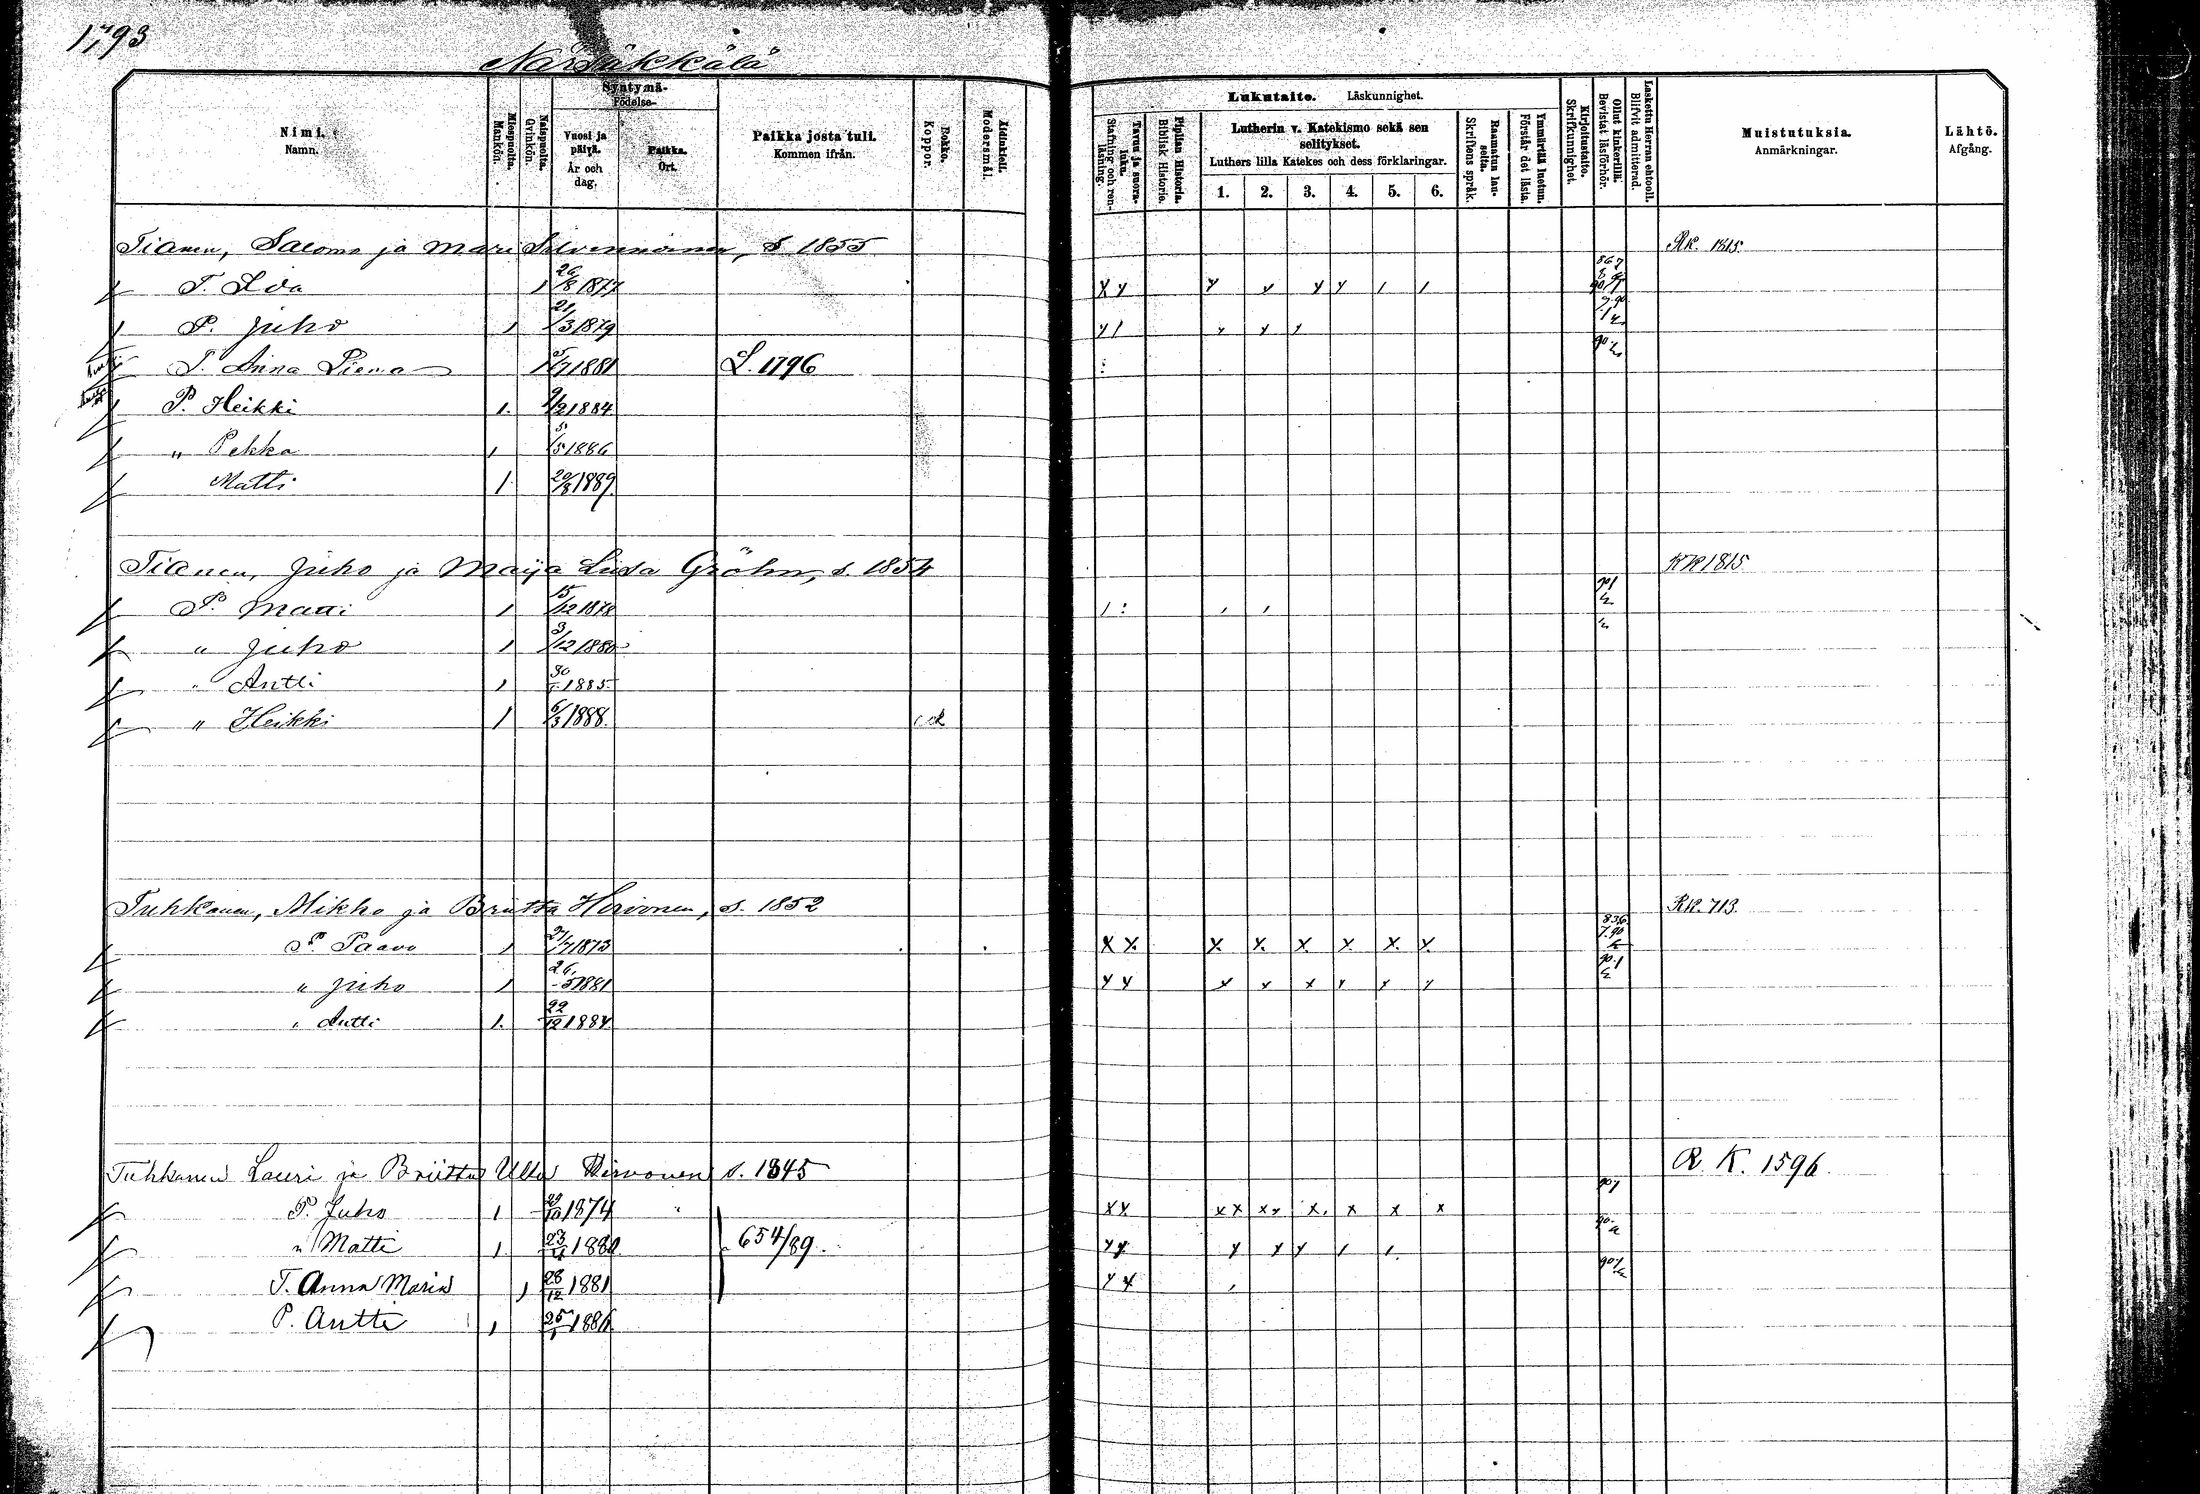 1,793
Närsäkkälä
Nimi. Namn.
Miespuolia. Mankön.
Naispuolia. Qvinkön.
Syntymä- Födelse-
Vuosi ja päivä. År och dag.
Paikka. Ort.
Paikka josta tuli. Kommen ifrån.
Rokko. Koppor.
Äidinkieli. Modersmål.
Lukutaito. Läskunnighet.
Tavuu ja suora-luku. Stafning och ren-läsning.
Piplian Historia. Biblisk Historie.
Lutherin v. Katekismo sekä sen selitykset.
Luthers lilla Katekes och dess förklaringar.
1. 2. 3. 4. 5. 6.
Raamatun lau-seita. Skriftens språk.
Ymmärtää luetun. Förstår det lästa.
Kirjoitustaito. Skrifkunnighet.
Ollut kinkerillä. Bevistat läsförhör.
Laskettu Herran ehtooll. Blifvit admitterad.
Muistutuksia. Anmärkningar.
Lähtö. Afgång.
Tianen, Salomo ja Mari Silvennoinen, s. 1855 RK. 1815.
T. Eva 1 26/8 1877 X y y y y y 1 1
P. Juho 1 21/3 1879 y 1 y y y
T. Anna Liena 1 5/7 1881 L. 1796
P. Heikki 1. 9/2 1884
" Pekka 1 5/5 1886
Matti 1 20/8 1889
Tianen, Juho ja Maija Liisa Gröhn, s. 1854 RK 1815
P. Matti 1 15/12 1878 1 : 1 1
" Juho 1 3/12 1880
" Antti 1 30/1 1885
" Heikki 1 6/3 1888.
Tuhkanen, Mikko ja Briitta Hirvonen, s. 1852 RK. 713.
P. Paavo 1 24/7 1873 X X. X. X. X. X. X. X.
" Juho 1 26/5 1881 y y x x x y y y
" Antti 1. 22/12 1884
Tuhkanen Lauri ja Briitta Ulla Hirvonen s. 1845 R. K. 1596.
P. Juho 1 29/10 1874 x x x x x x x. x x x
" Matti 1. 23/4 1880 654/89. y y y y y 1 1.
T. Anna Maria 1 28/12 1881 y y 1
P. Antti 1 25/1 1886